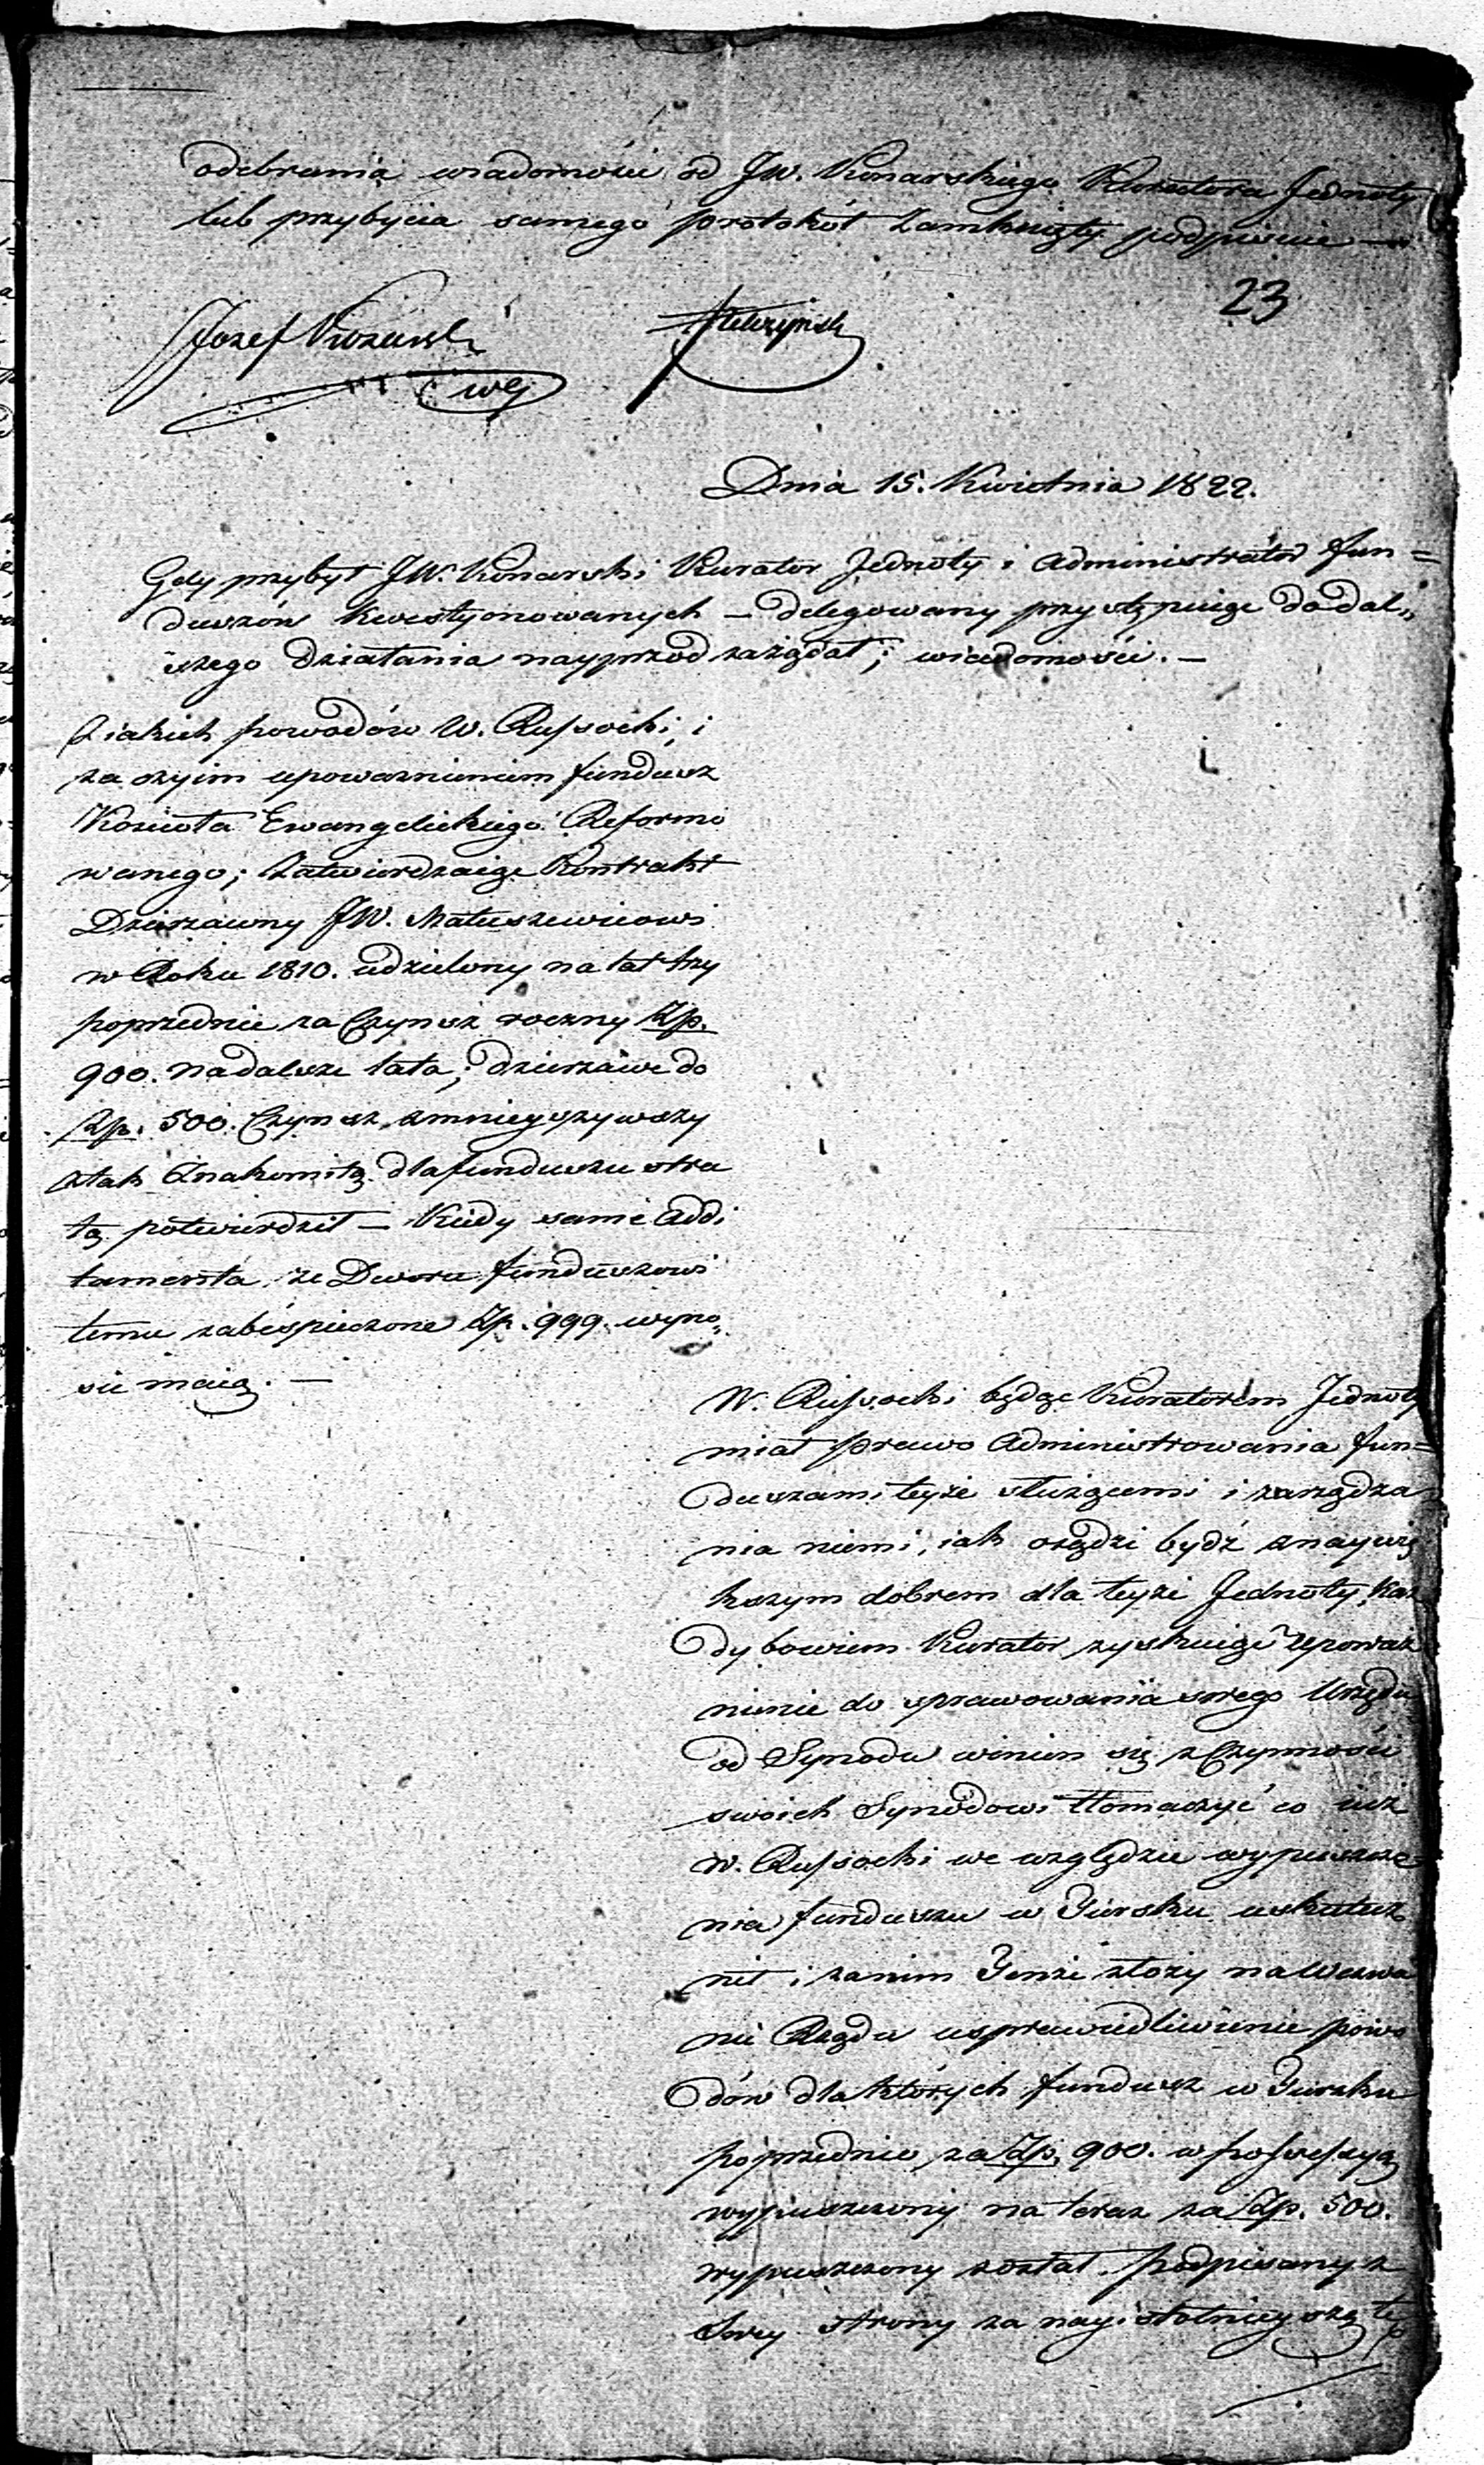 odebrania wiadomości od JW. Konarskiego Kuratora Jednoty
lub przybycia samego protokół zamknięty podpisuie —
23
Jozef
Dnia 15. Kwietnia 1822.
Gdy przybył JW. Konarski Kurator Jednoty i Administrator Fun=
duszów kwestyonowanych — delegowany przystępuiąc do dal„
szego działania nayprzód zażądał; wiadomości. —
Z iakich powodów W. Russocki, i
za czyim upoważnieniem fundusz
Kościoła Ewangelickiego Reformo
wanego; zatwierdzaiąc Kontrakt
Dzierżawny JW. Matuszewicowi
w Roku 1810. udzielony na lat trzy
poprzednie za Czynsz roczny Zp.
900. na dalsze lata; dzierżawę do
Zp. 500. Czynsz zmnieyszywszy
z tak znakomitą dla funduszu stra
tą potwierdził — Kiedy same Addi
tamenta ze Dworu funduszowi
temu zabespieczone Zp. 999. wyno„
sić maią. —
W. Russocki będąc Kuratorem Jednoty
miał prawo Administrowania fun=
duszami teyże służącemi i zarządza
nia niemi, iak osądzi bydź z naywię
kszym dobrem dla teyże Jednoty, Każ
dy bowiem Kurator zyskuiąc upoważ
nienie do sprawowania swego Urzędu
od Synodu winien się z Czynności
swoich Synodowi tłomaczyć co iuż
W. Russocki we względzie wypuszcze
nia funduszu w Żursku uskutecz
nił i zanim Tenże złoży na Wezwa
nie Rządu usprawiedliwienie powo
dów dla których fundusz w Żursku
poprzednio za Zp. 900. w possessyą
wypuszczony na teraz za Zp. 500.
wypuszczony został. Podpisany z
Swey strony za nayistotnieyszą tę